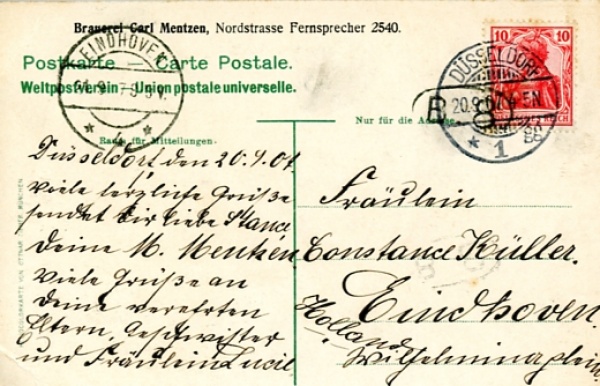 Brauerei Carl Mentzen, Nordstrasse Fernsprecher 2540.
Postkarte — Carte Postale.
Weltpostverein — Union postale universelle.
Nur für die Adresse
Raum für Mitteilungen.
EINDHOVEN
4
10 10
DÜSSELDORF
20.9.07. 4-5N.
* 1
Düsseldorf den 20.9.07.
Viele herzliche Grüße
sendet Dir liebe Stance
Deine M. Mentzen
Viele Grüße an
Deine verehrten
Eltern, Geschwister
und Fräulein Lucie
Fräulein
Constance Küller.
Eindhoven.
Holland
Wilhelminaplein